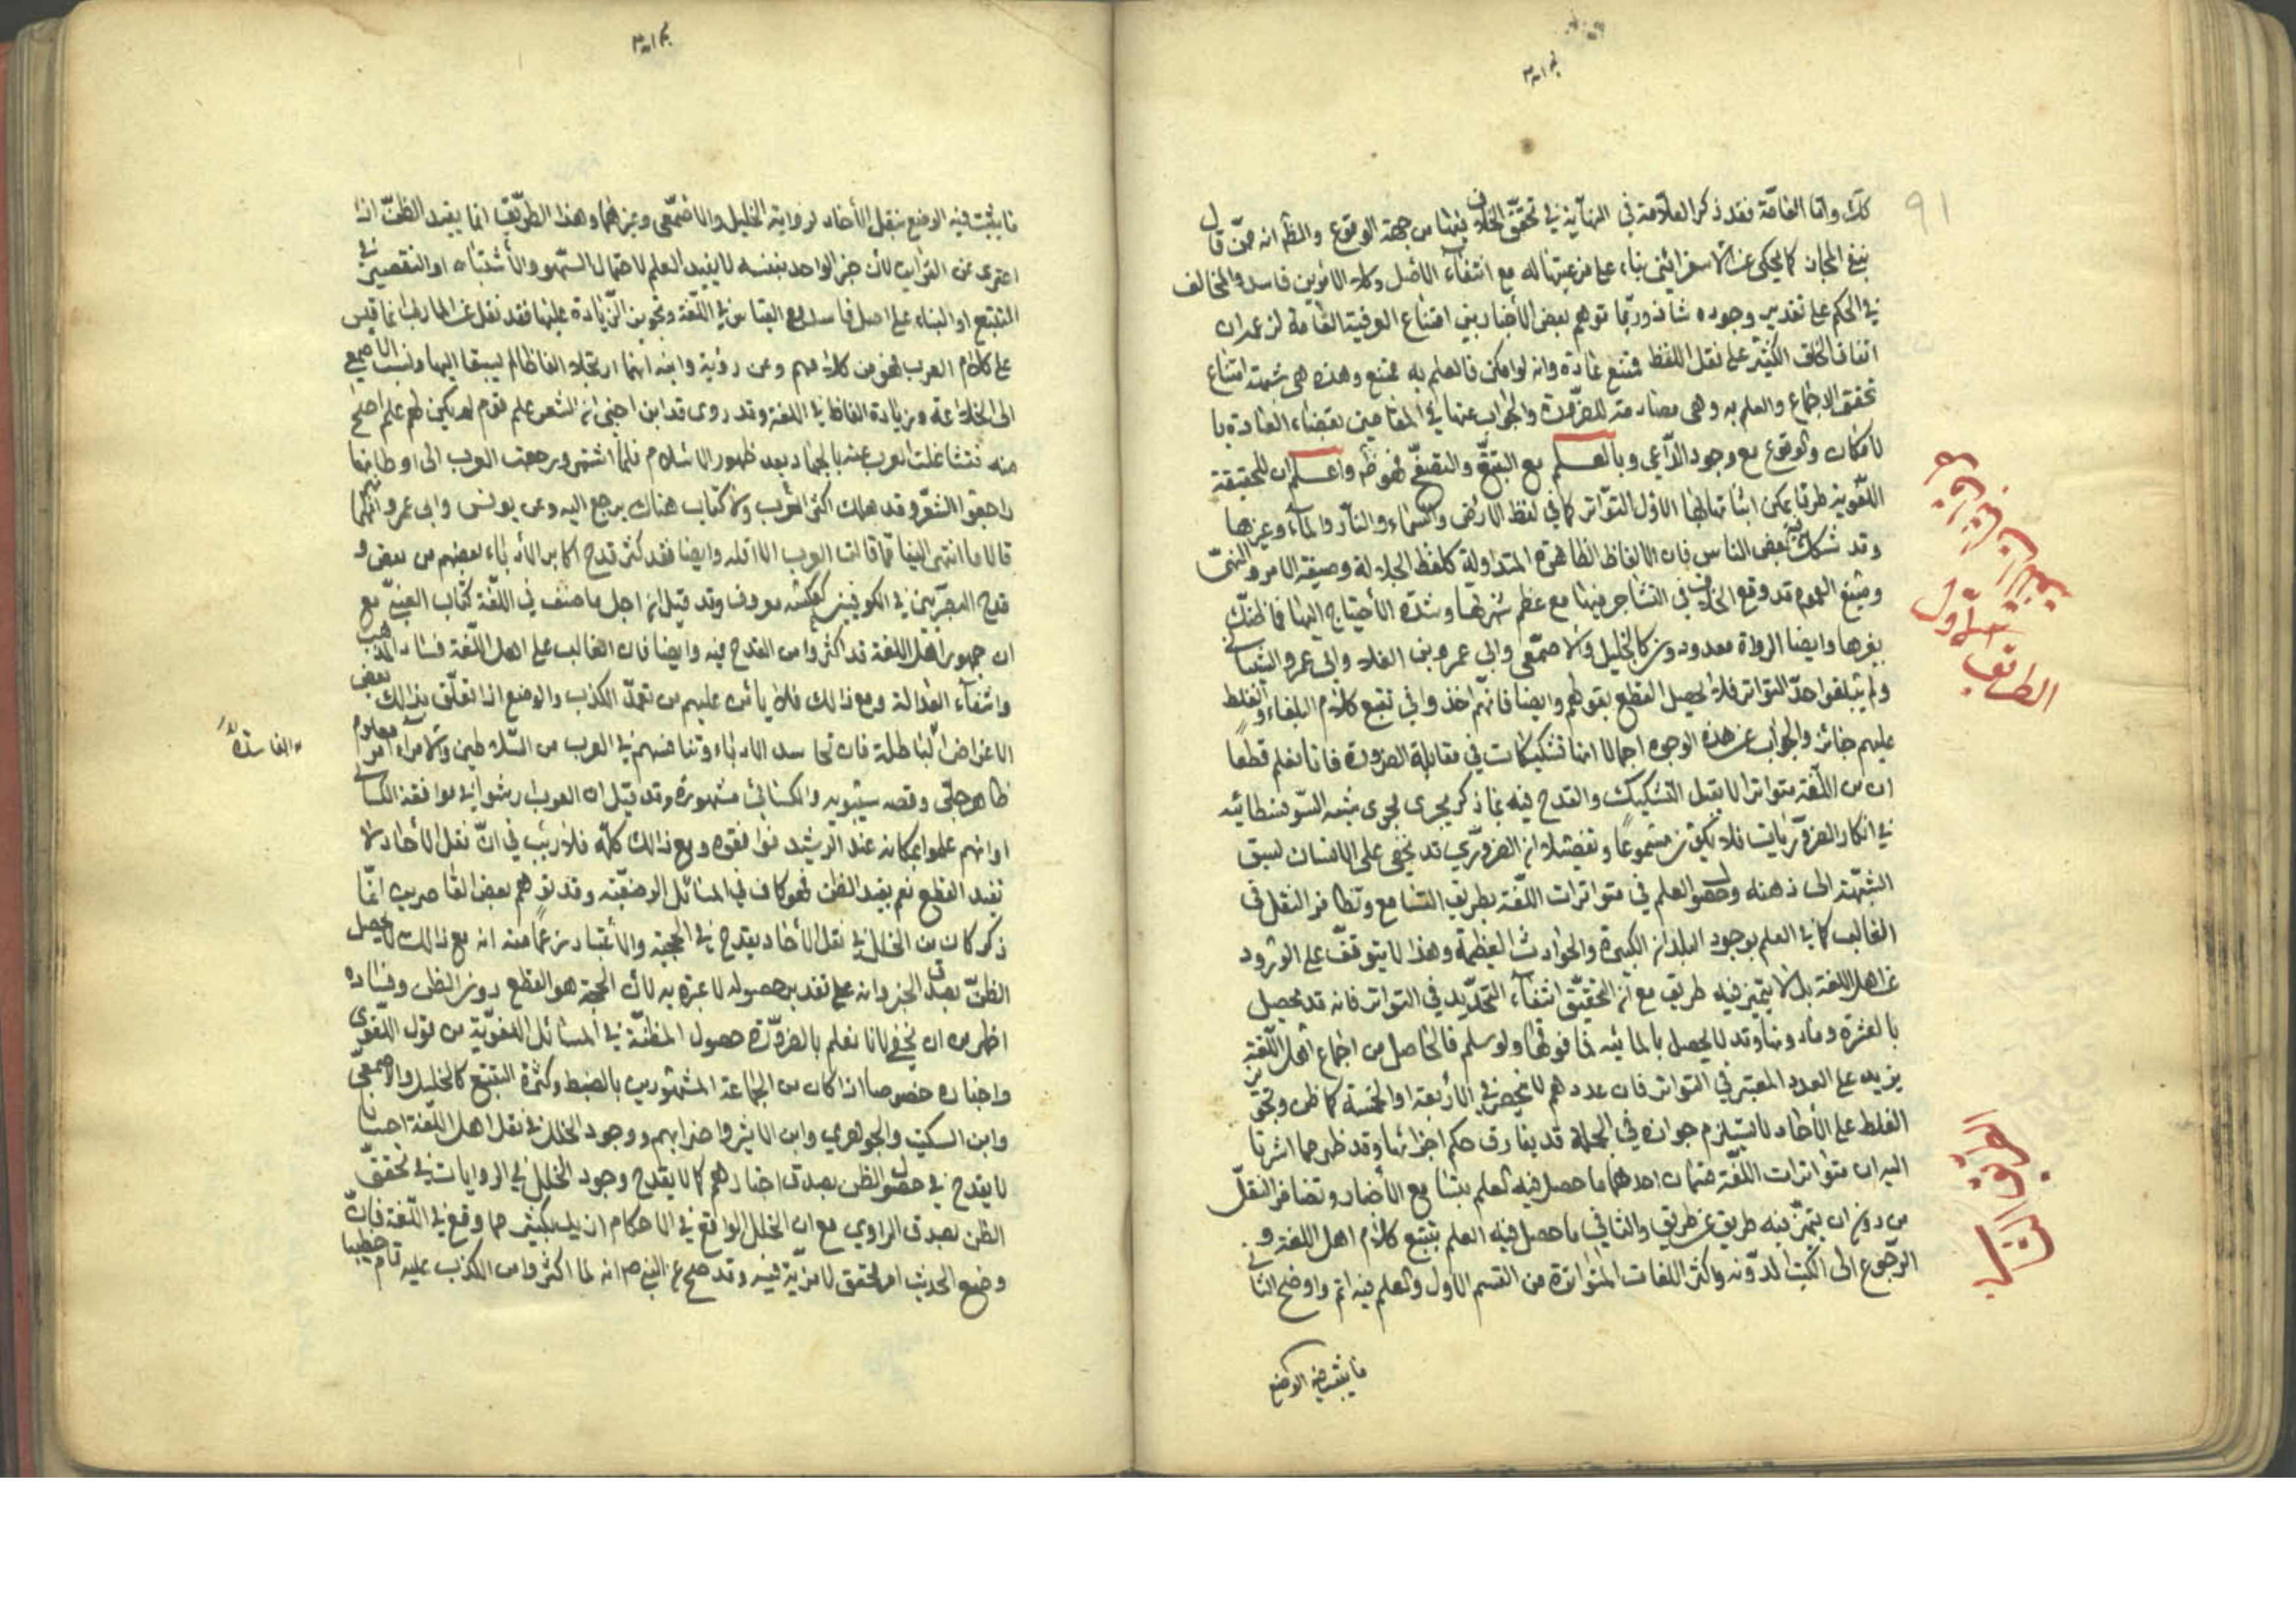 كك واما العامّة فقد ذكر العلّامة في النهاية في تحقّق الخلاف فيها من جهة الوقوع والظ انه ممّن قال
بنفي المجاز كما يحكى عن الاسفرائيني بناء على مرعيتها له مع انتفاء الاصل وكلا الامرين فاسد والمخالف
في الحكم على تقدير وجوده شاذ وربّما توهم بعض الأخباريين امتناع العرفية العامة لزعمه ان
اتفاق الخلق الكثير على نقل اللفظ ممتنع عادة وانه لو امكن فالعلم به ممتنع وهذه هي شبهة امتناع
تحقق الاجماع والعلم به وهي مصادمة للضرورة والجواب عنها في المقامين بقضاء العادة با
لامكان والوقوع مع وجود الدّاعي وبالعلم مع التتبّع والتصفّح لحوظ واعلم ان للحقيقة
اللغوية طرقا يمكن اثباتها بها الاول التّواتر كما في لفظ الارض والسماء والنار والماء وغيرها
وقد شكك فيه بعض الناس فان الالفاظ الظاهرة المتداولة كلفظ الجلالة وصيغة الامر والنهي
وصيغ العموم قد وقع الخلاف في التشاجر فيها مع عظم شهرتها وشدّة الأحتياج اليها فما ظنّك
بغيرها وايضا الرواة معدودون كالخليل والاصمّعي وابي عمرو بن العلاء وابي عمرو الشيباني
ولم يبلغوا حدّ التواتر فلا يحصل القطع بقولهم وايضا فانّهم اخذوا في تتبع كلام البلغاء والغلط
عليهم جائز والجواب عن هذه الوجوه اجمالا انها تشكيكات في مقابلة الضرورة فانا نعلم قطعا
ان من اللّغة متواترا لا يقبل التشكيك والقدح فيه بما ذكر يجري مجرى شبه السّوفسطائيه
في انكار الضروّريات فلا يكون مسموعًا وتفصيلا ان الضروّري قد يخفى على الانسان لسبق
الشبّهة الى ذهنه وحصول العلم في متواترات اللّغة بطريق التسامع وتظافر النقل في
الغالب كما في العلم بوجود البلدان الكبيرة والحوادث العظيمة وهذا لا يتوقف على الورود
عن اهل اللغة بل لا يتميز فيه طريق مع ان التحقيّق انتفاء التحدّيد في التواتر فانه قد يحصل
بالعشرة وما دونها وقد لا يحصل بالمائيه فما فوقها ولو سلم فالحاصل من اجماع اهل اللّغة
يزيد على العدد المعتبر في التواتر فان عددهم لا ينحصر في الأربعة او الخمسة كما ظن وتجويز
الغلط على الأحاد لا يستلزم جوازه في الجملة قد يفارق حكم اجزائها وقد ظهر مما اشرنا
اليه ان متواترات اللغّة ضمان احدهما ما حصل فيه العلم بتسامع الأخبار وتضافر النقل
من دون ان يتميّز فيه طريق عن طريق والثاني ما حصل فيه العلم بتتبع كلام اهل اللغة و
الرّجوع الى الكتب المدوّنه واكثر اللغات المتواترة من القسم الاول والعلم فيه اتم واوضح الثاني
ما يثبت فيه الوضع
91
الطريق الاول
الطريق الثاني
ما يثبت فيه الوضع بنقل الأحاد لرواية الخليل والاصمّعي وغيرهما وهذا الطرّيق انما يفيد الظنّ اذا
اعترى عن القراين لأن خبر الواحد بنفسه لا يفيد العلم لاحتمال السّهو والأشتباه او التقصير في
التتبع او البناء على اصل فاسد مع القياس في اللّغة وتجويز الزّيادة عليها فقد نقل عن المازني انما قيس
على كلام العرب فهو من كلامهم وعن رؤبة وابيه انهما ارتجلا الفاظا لم يسبقا اليها ونسب الاصمعي
الى الخلاعة وزيادة الفاظ في اللغة وقد روى قد ابن اجني ان الشعر علم قوم لم يكن لهم علم اصح
منه فتشاغلت العرب عنه بالجهاد بعد ظهور الاسلام فلمّا اشتهر ورجعت العرب الى اوطانها
راجعوا الشعّر وقد هلك اكثر العرب ولا كتاب هناك يرجع اليه وعن يونس وابي عمرو انهما
قالا ما انتهى الينا مما قالت العرب الا اقله وايضا فقد كثر قدح اكابر الأدباء بعضهم من بعض و
قدح البصرّيين في الكوفيين كعكسه معروف وقد قيل ان اجل ما صنف في اللغّة كتاب العين مع
ان جمهور اهل اللغة قد اكثروا من القدح فيه وايضا فان الغالب على اهل اللّغة فساد المذهب
وانتفاء العدالة ومع ذالك فلا يأمن عليهم من تعمدّ الكذب والوضع اذا تعلّق بذالك بعض
الاغراض الباطلة فان تحاسد الادباء وتنافسهم في العرب من السّلاطين والامراء امر معلوم
ظاهر جلّي وقصه سيبّويه والكسائي مشهورة وقد قيل ان العرب ارشوا في موافقة الكسائي
او انهم علموا بمكانه عند الرشيد فوافقوه ومع ذالك كلّه فلا ريب في انّ نقل الأحاد لا
يفيد القطع نعم يفيد الظن فهو كاف في المسائل الوضعيّة وقد توهم بعض القاصرين انّ ما
ذكر كان من الخلل في نقل الأحاد يقدح في الحجية والأعتبار زعمًا منه انه مع ذالك لا يحصل
الظنّ بصدق الخبر وانه على تقدير حصوله لا عبرة به لأن الحجة هو القطع دون الظن وفساده
اظهر من ان يخفى لانا نعلم بالضروّرة حصول المظنّة في المسائل اللغويّة من قول اللّغوي
واخباره خصوصا اذا كان من الجماعة المشهّورين بالضبط وكثرة التتبع كالخليل والاصمعّي
وابن السكيت والجوهري وابن الاثير واضرابهم ووجود الخلل في نقل اهل اللّغة احيانا
لا يقدح في حصول الظن بصدق اخبارهم كما لا يقدح وجود الخلل في الروايات في تحقق
الظن بصدق الراوي مع ان الخلل الواقع في الاحكام ازيد بكثير مما وقع في اللّغة فانّ
وضع الحديث امر محقق لا مزيّة فيه وقد صح عن النبي ص انه لما اكثروا من الكذب عليه قام خطيبا
الفاسدة